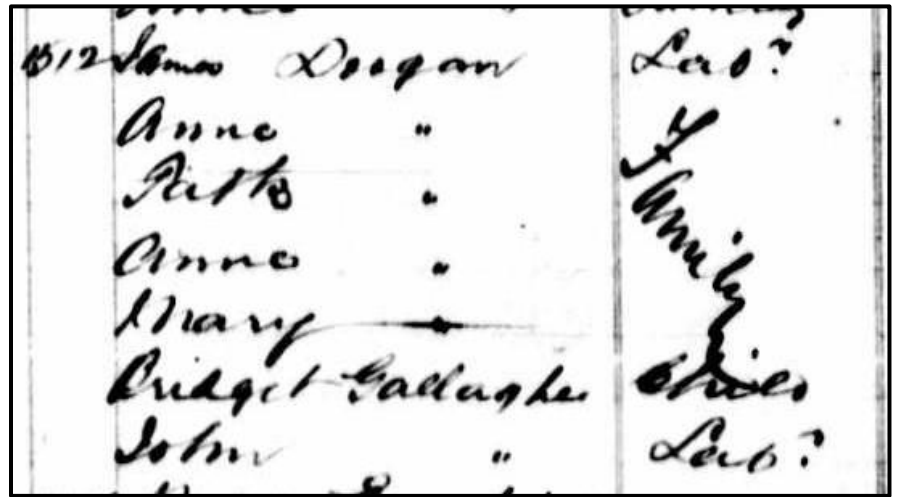 1512 James Deegan Labr
Anne "
Patk "
Anne "
Mary "
Family
Bridget Gallagher Child
John " Labr